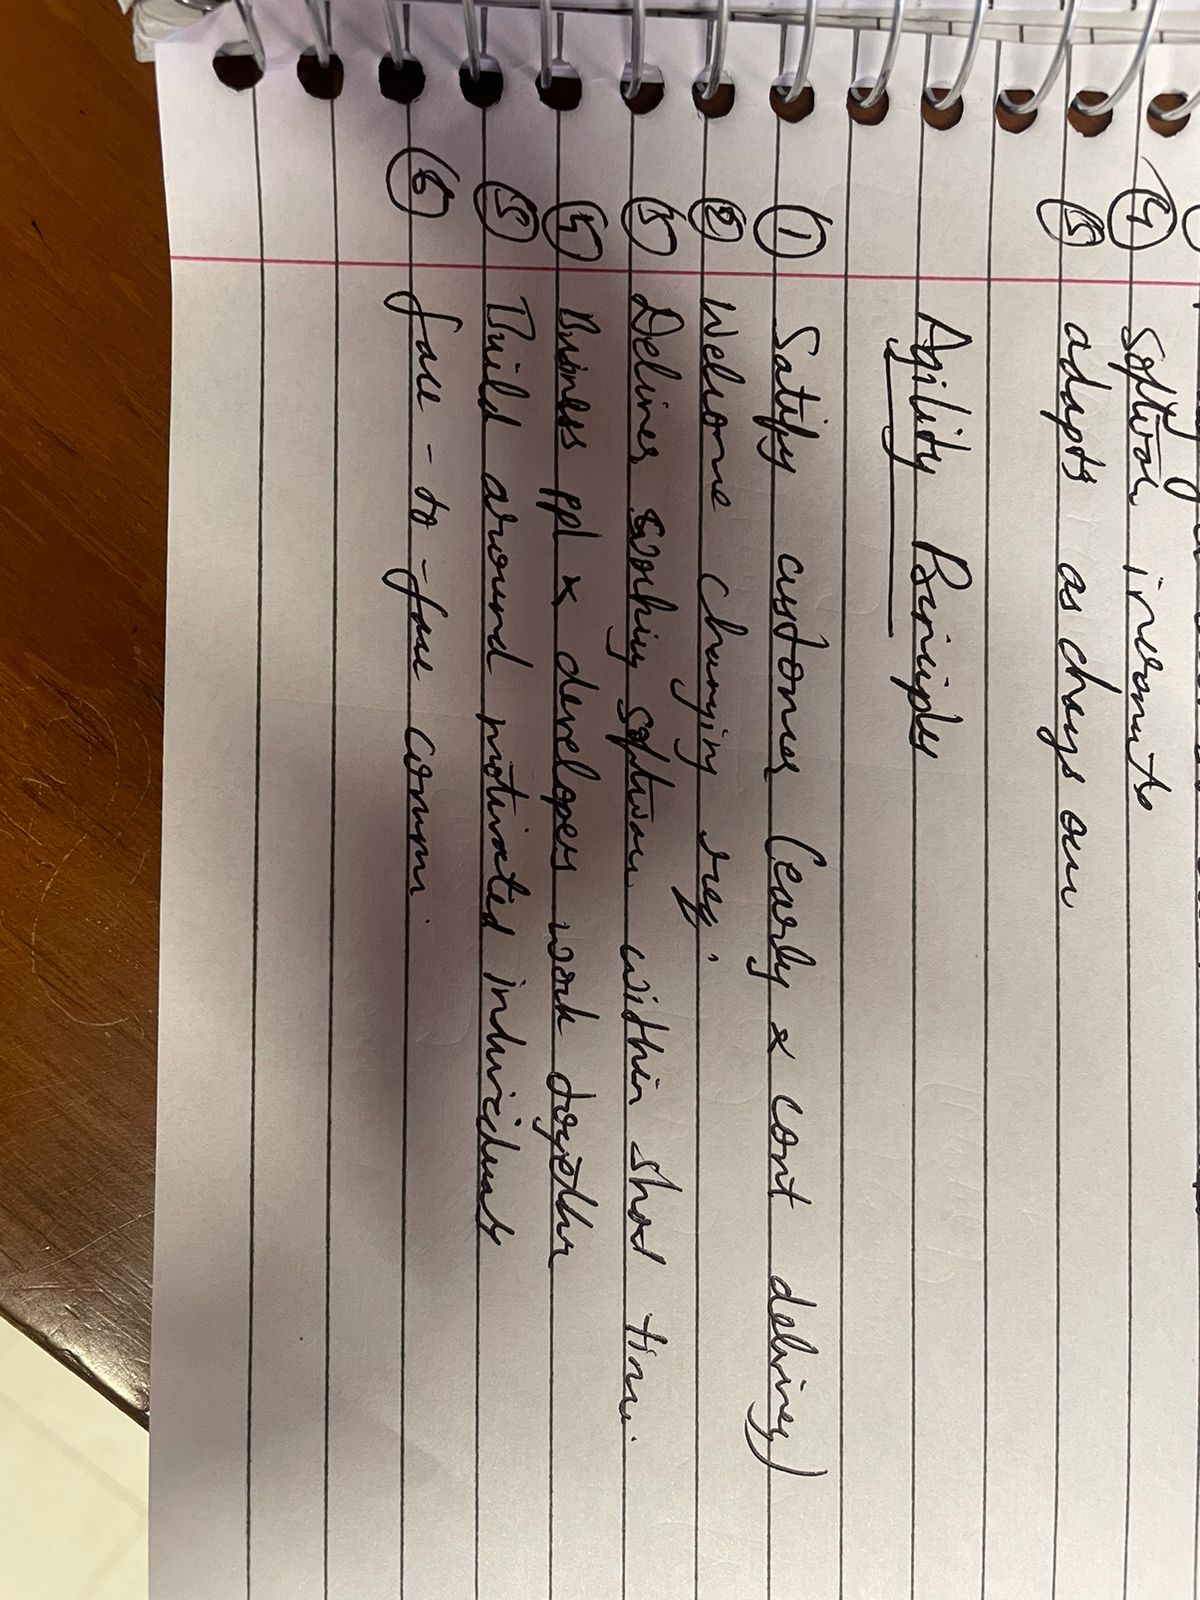 ④ software increments
⑤ adapts as changes occur
Agility Principles
① Satify customer (early & cont delivery)
② Welcome changing req.
③ Deliver working software within short time.
④ Business ppl & developers work together
⑤ Build around motivated individuals
⑥ face-to-face comm.